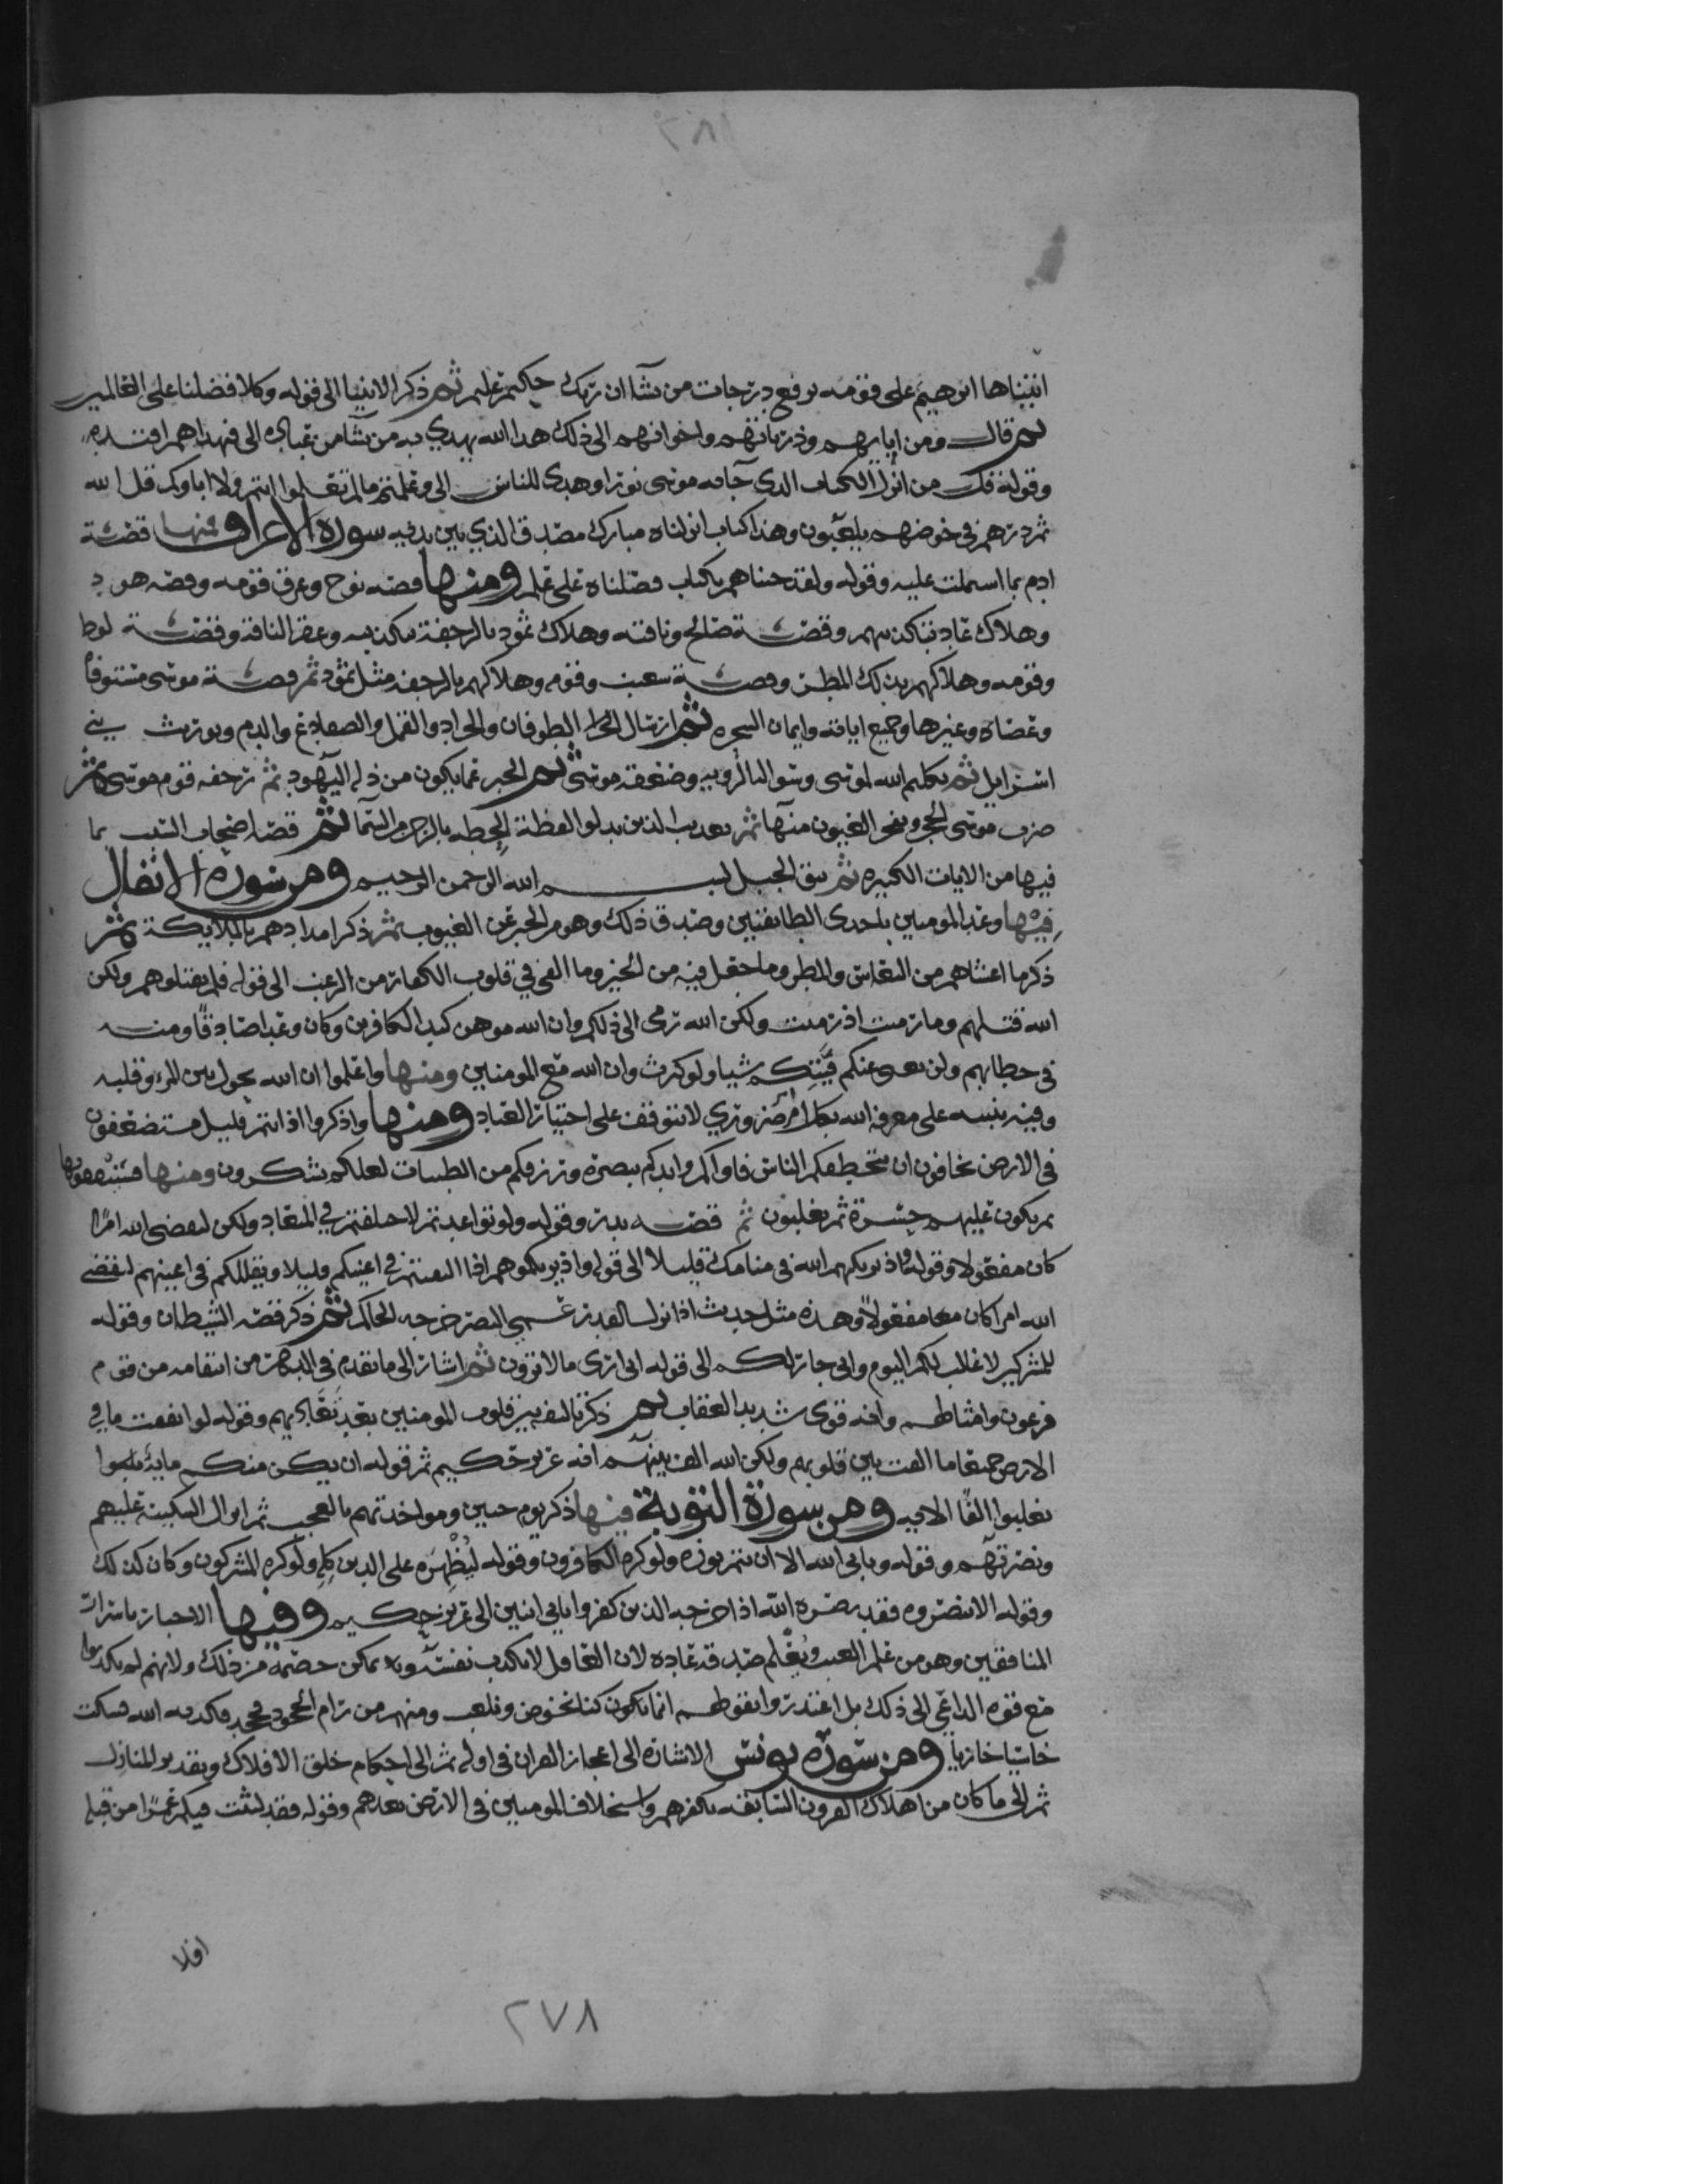 اتيناها ابرهيم على قومه نرفع درجات من نشآ ان ربك حكيم عليم ثم ذكر الانبيا الى قوله وكلا فضلنا على العالمين
ثم قال ومن ابايهم وذرياتهم واخوانهم الى ذلك هدا الله يهدي به من يشآ من عباده الى فبهداهم اقتده
وقوله قل من انزل الكتاب الدي جآ به موسى نورا وهدى للناس الى وعلمتم مالم تعلموا انتم ولا اباوكم قل الله
ثم ذرهم في خوضهم يلعبون وهذا كتاب انزلناه مبارك مصدق الذي بين يديه سورة الاعراف منها قصة
ادم بما اسملت عليه وقوله ولقد جيناهم بكتاب فصلناه على علم ومنها قصه نوح وغرق قومه وقصه هود
وهلاك عاد بتكذيبهم وقصة صالح وناقته وهلاك ثمود بالرجفة بتكذيبه وعقر الناقة وقصة لوط
وقومه وهلاكهم بذلك المطر وقصة شعيب وقومه وهلاكهم بالرجفه مثل ثمود ثم قصة موسى مستوفاه
وعصاه وغيرها وجميع اياته وايمان السحره ثم ارسال الطوفان والجراد والقمل والضفادع والدم وبورث بني
اسرايل ثم تكليم الله لموسى وسوالنا لرويه وصعقة موسى ثم الخبر عما يكون من ذله اليهود ثم رجفه قوم موسى ثم
ضرب موسى الحجر وتفجر العيون منها ثم تعديب الذين بدلوا لفظة الحطه بالرجز من السمآ ثم قصه اصحاب السبت بما
فيها من الايات الكبيره ثم نتق الجبل بسم الله الرحمن الرحيم ومن سورة الانفال
فيها وعد المومنين باحدى الطايفتين وصدق ذلك وهو من الخبر عن الغيوب ثم ذكر امدادهم بالملايكة ثم
ذكر ما اغشاهم من النعاس والمطر وما جعل فيه من الخير وما القى في قلوب الكفار من الرعب الى قوله فلم تقتلوهم ولكن
الله قتلهم وما رميت اذ رميت ولكن الله رمى الى ذلكم وان الله موهن كيد الكافرين وكان وعدا صادقا ومنه
في خطابهم ولن تغني عنكم فيتكم شيا ولو كثرت وان الله مع المومنين ومنها واعلموا ان الله يحول بين المرء وقلبه
وفيه تنبيه على معرفه الله بكل امر ضروري لا تتوقف على اختيار العباد ومنها واذكروا اذ انتم قليل مستضعفون
في الارض تخافون ان يتخطفكم الناس فاواكم وايدكم بنصره ورزقكم من الطيبات لعلكم تشكرون ومنها فسينفقونها
ثم تكون عليهم حسرة ثم يغلبون ثم قصه بدر وقوله ولو تواعدتم لاختلفتم في الميعاد ولكن ليقضي الله امرا
كان مفعولا وقوله واذ يريكهم الله في منامك قليلا الى قوله واذ يريكموهم اذا التقيتم في اعينكم قليلا ويقللكم في اعينهم ليقضي
الله امرا كان مفعولا وهذه مثل حديث اذا نزل القدر عمي البصر خرجه الحاكم ثم ذكر قصه الشيطان وقوله
للمشركين لا غالب لكم اليوم واني جار لكم الى قوله اني ارى ما لا ترون ثم اشار الى ما تقدم في البكار من انتقامه من قوم
فرعون وامثالهم وانه قوي شديد العقاب ثم ذكر تاليفه بين قلوب المومنين بعد تعاديهم وقوله لو انفقت ما في
الارض جميعا ما الفت بين قلوبهم ولكن الله الف بينهم انه عزيز حكيم ثم قوله ان يكن منكم مايه يغلبوا
يغلبوا الفا الايه ومن سورة التوبة فيها ذكر يوم حنين ومواخذتهم بالعجب ثم انزال السكينة عليهم
ونصرتهم وقوله ويابى الله الا ان يتم نوره ولو كره الكافرون وقوله ليظهره على الدين كله ولو كره المشركون وكان كذلك
وقوله الا تنصروه فقد نصره الله اذ اخرجه الذين كفروا ثاني اثنين الى عزيز حكيم وفيها الاخبار باسرار
المنافقين وهو من علم الغيب ويعلم صدقه عاده لان العاقل لا يكذب نفسه ويمكن خصمه من ذلك ولانهم لم يكذبوا
مع قوه الداعي الى ذلك بل اعتذر وابقولهم انما يكون كنا نخوض ونلعب ومنهم من رام الجحود فجحد فكذبه الله فسكت
خاسيا خازيا ومن سورة يونس الاشارة الى اعجاز القران في اوله ثم الى احكام خلق الافلاك وتقدير المنازل
ثم الى ما كان من اهلاك القرون السابقه بكفرهم واستخلاف المومنين في الارض بعدهم وقوله فقد لبثت فيكم عمرا من قبله
افلا
٢٧٨